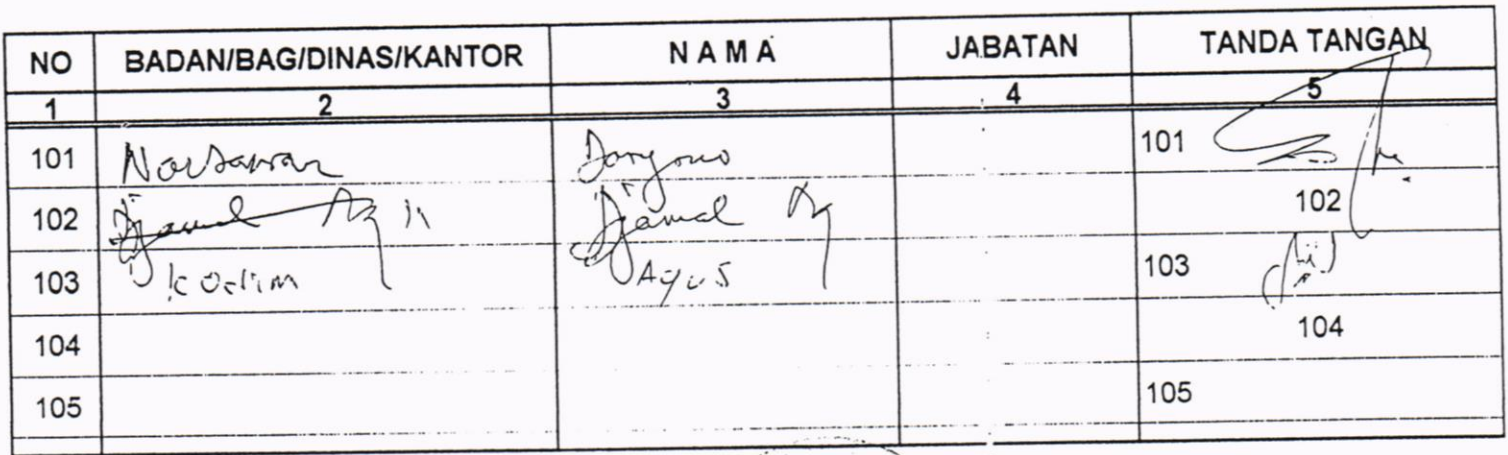 NO BADAN/BAG/DINAS/KANTOR N A M A JABATAN TANDA TANGAN
1 2 3 4 5
101 Daryono 101
102 Djamal Djamal 102
103 Kodim Agus 103
104 104
105 105